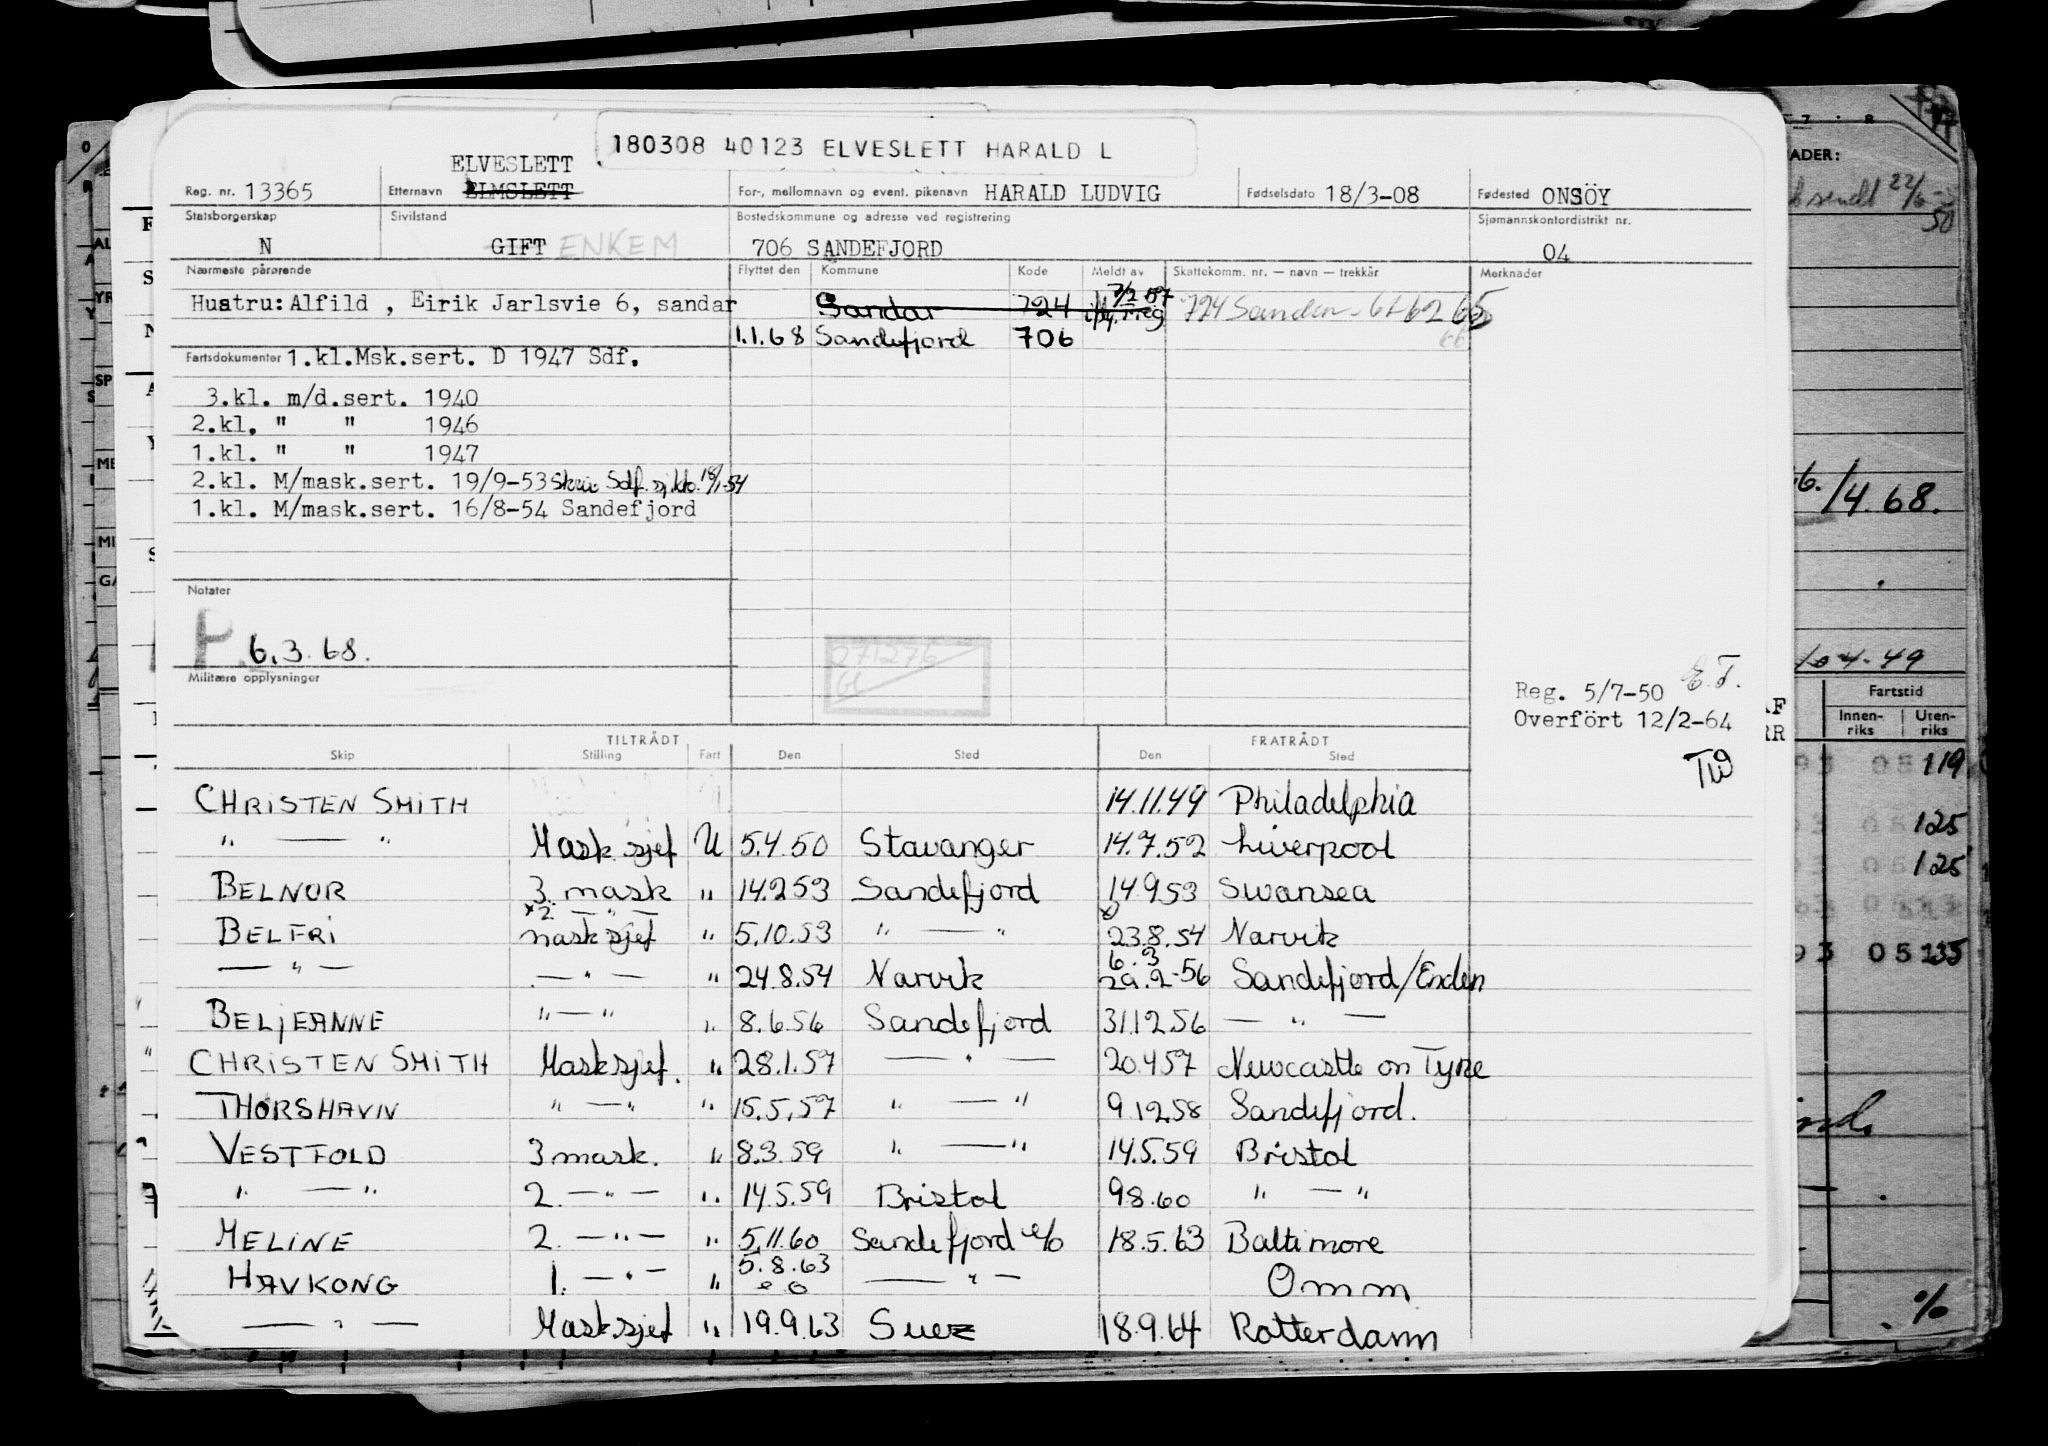 180308 40123 ELVESLETT HARALD L
ELVESLETT
Reg. nr. 13365 Etternavn ELMSLETT For-, mellomnavn og event. pikenavn HARALD LUDVIG Fødselsdato 18/3-08 Fødested ONSÖY
Statsborgerskap Sivilstand Bostedskommune og adresse ved registrering Sjømannskontordistrikt nr.
N GIFT ENKEM 706 SANDEFJORD 04
Nærmeste pårørende Flyttet den Kommune Kode Meldt av Skattekomm. nr. — navn — trekkår Merknader
Hustru: Alfild , Eirik Jarlsvie 6, sandar Sandar 724 7/2 57 724 Sandar - 61 62 65
1.1.68 Sandefjord 706
Fartsdokumenter 1.kl.Msk.sert. D 1947 Sdf.
3.kl. m/d.sert. 1940
2.kl. " " 1946
1.kl. " " 1947
2.kl. M/mask.sert. 19/9-53
1.kl. M/mask.sert. 16/8-54 Sandefjord
Notater
P. 6.3.68.
271276
Militære opplysninger
Reg. 5/7-50 E.T.
Overfört 12/2-64
TW
TILTRÅDT FRATRÅDT
Skip Stilling Fart Den Sted Den Sted
CHRISTEN SMITH 14.11.49 Philadelphia
" — " Mask sjef U 5.4.50 Stavanger 14.7.52 Liverpool
BELNOR 3. mask " 14.2 53 Sandefjord 14.9 53 Swansea
x 2. — " —
BELFRI mask sjef " 5.10.53 " — " 23.8.54 Narvik
— " — — " — " 24.8.54 Narvik 6.3 29.2-56 Sandefjord/Enden
BELJEANNE " — " " 8.6.56 Sandefjord 31.12 56 — " —
CHRISTEN SMITH Masksjef. " 28.1.57 — " — 20.4 57 Newcastle on Tyne
THORSHAVN " — " " 15.5.57 " — " 9.12 58 Sandefjord.
VESTFOLD 3 mask. " 8.3.59 " — " 14.5.59 Bristol
" — " 2. — " — " 14.5.59 Bristol 9 8.60 " — "
MELINE 2. — " — " 5.11.60 Sandefjord e/o 18.5.63 Baltimore
HAVKONG 1. — " — " 5.8.63 e o — " — Omm
— " — Masksjef " 19.9.63 Suez 18.9.64 Rotterdam
ADER:
22/6-50
/4.68.
4-49
Fartstid
Innen-
riks
Uten-
riks
119
125
125
93 05 135
%